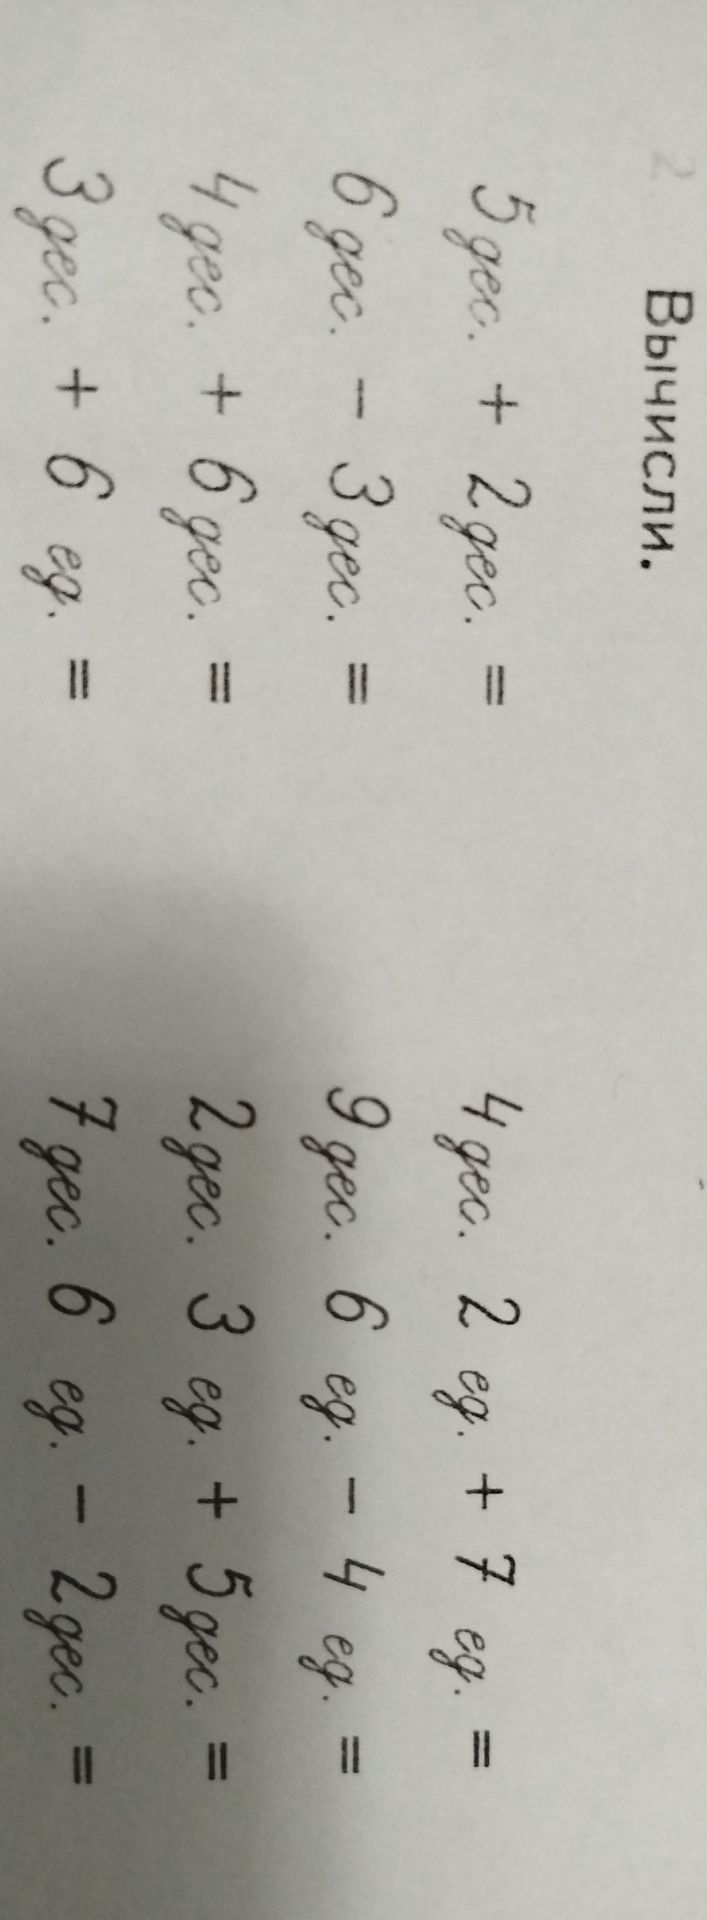 2. Вычисли.
5 дес. + 2 дес. =
6 дес. - 3 дес. =
4 дес. + 6 дес. =
3 дес. + 6 ед. =
4 дес. 2 ед. + 7 ед. =
9 дес. 6 ед. - 4 ед. =
2 дес. 3 ед. + 5 дес. =
7 дес. 6 ед. - 2 дес. =